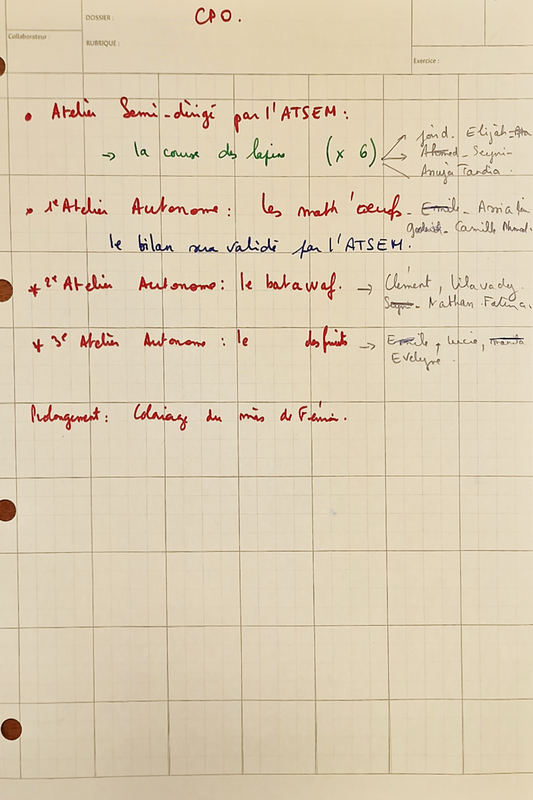 DOSSIER :
CPO.
Collaborateur :
RUBRIQUE :
Exercice :
• Atelier Semi-dirigé par l'ATSEM :
→ la course des lapins (x 6)
Elijah
Ahmed - Seyni -
Anuja Tandia.
• 1e Atelier Autonome : les math'oeufs - Emile -
Camille Ahmed.
le bilan sera validé par l'ATSEM.
* 2e Atelier Autonome : le batawaf. → Clément, Lilavady.
Seyni - Nathan Fatima.
* 3e Atelier Autonome : le des fruits → Emile, Lucie,
Evelyne.
Prolongement : Coloriage du mois de Février.